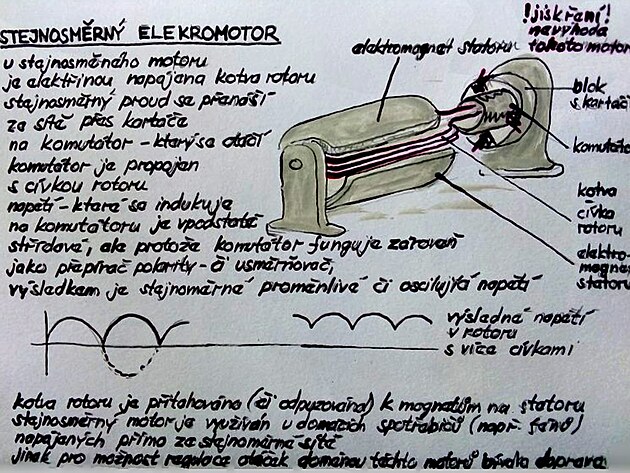 STEJNOSMĚRNÝ ELEKROMOTOR
u stejnosměného motoru
je elektřinou napájena kotva rotoru
stejnosměrný proud se přenáší
ze sítě přes kartáče
na komutátor - který se otáčí
komutátor je propojen
s cívkou rotoru
napětí - které se indukuje
na komutátoru je vpodstatě
střídavé, ale protože komutátor funguje zároveň
jako přepínač polarity - či usměrňovač,
výsledkem je stejnoměrné proměnlivé či oscilující napětí
elektromagnet statoru
!jiskření!
nevýhoda
tohoto motoru
blok
s kartáči
komutáto
kotva
cívka
rotoru
elektro-
magnet
statoru
výsledné napětí
v rotoru
s více cívkami
kotva rotoru je přitahována (či odpuzována) k magnetům na statoru
stejnosměrný motor je využíván u domácích spotřebičů (např. fénů)
napájených přímo ze stejnoměrné sítě
jinak pro možnost regulace otáček doménou těchto motorů bývala doprava